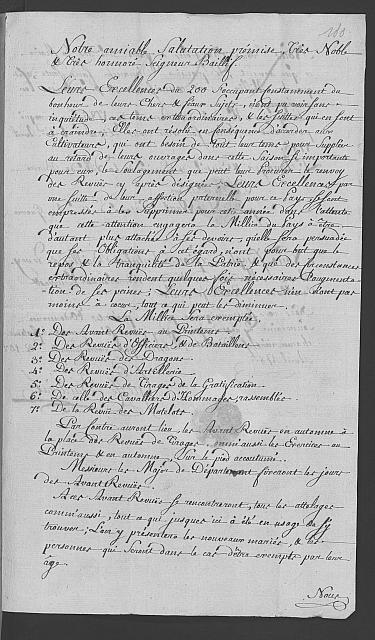 Notre amiable Salutation prémise, Très Noble
& très honnoré Seigneur Baillif.
Leurs Excellences du 200 s'occupant constamment du
bonheur de leurs Chers & féaux Sujets, n'ont pû voir sans
inquiétude, ces tems extraordinaires, & les suittes qui en sont
à craindre; Elles ont résolu en conséquence d'accorder aux
Cultivateurs, qui ont besoin de tout leur tems pour Suppléer
au retard de leurs ouvrages dans cette Saison si importante
pour eux, le Soulagement que peut leur procurer le renvoy
des Revües cy après désignées; Leurs Excellences par
une suitte de leur affection paternelle pour ce Pays se sont
empressées à les Supprimer pour cet année dans l'attente
que cette attention engagera la Milice du Pays à être
d'autant plus attachée à ses devoirs, qu'elle sera persuadée
que ses Obligations à cet égard, n'ont pour but que le
repos & la tranquilité de la Patrie, & que si les circonstances
extraordinaires rendent quelques fois nécessaires l'augmenta-
tion de ses peines; Leurs Excellences n'en ont pas
moins à coeur, tout ce qui peut les diminuer.
La Milice Sera exemptée
1.° Des Avant Revües au Printems
2.° Des Revües d'Officiers & de Bataillons
3.° Des Revües des Dragons.
4.° Des Revües d'Artillerie
5.° Des Revües de Tirages de la Gratification
6.° De celle des Cavalliers d'Hommages, rassemblés
7.° De la Revüe des Matelots.
Par contre auront lieu, les Avant Revües en automne à
la place des Revües de Tirages, comm'aussi les Exercices au
Printems & en automne, Sur le pied accoutumé.
Messieurs les Majors de Département fixeront les jours
des Avant Revües.
A ces Avant Revües se rencontreront, tous les attelages
comm'aussi, tout ce qui jusques ici a été en usage de s'y
trouver; L'on y présentera les nouveaux mariés, & les
personnes qui seront dans le cas d'être exemptés par leur
age.
Nous